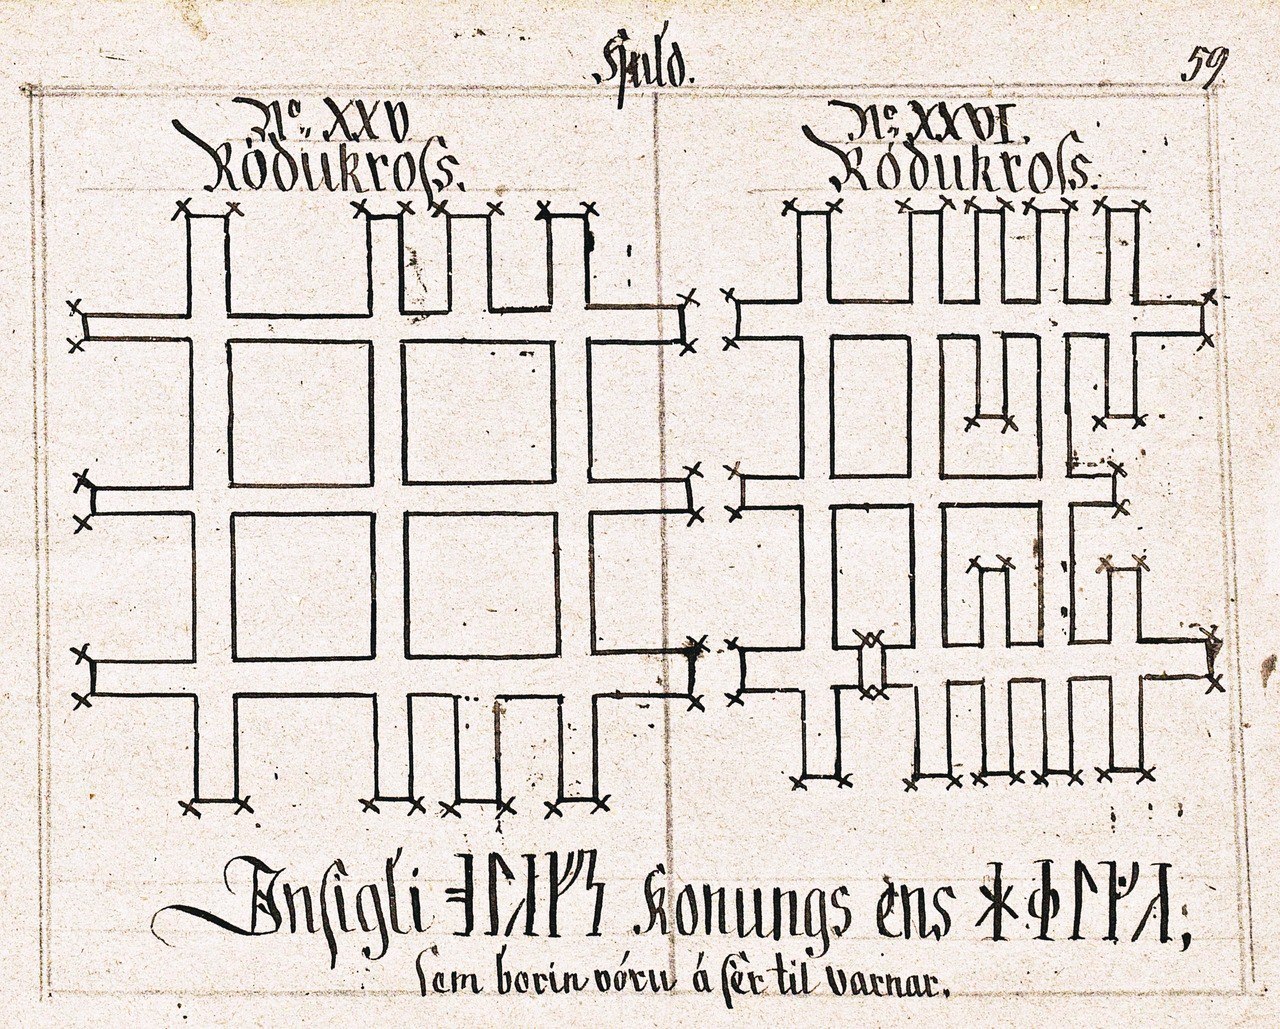 Huld.
59
No. XXV
Róðukroſs.
No XXVI.
Róðukroſs.
Inſigli ᚮᛚᛆᚠᛋ konungs ens ᚼᛰᛚᚵᛆ,
ſem borin vóru á ſèr til varnar.